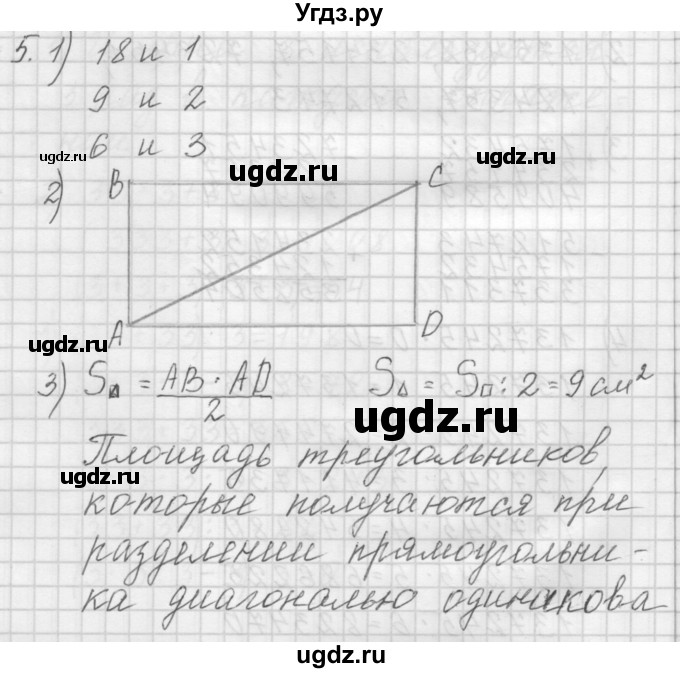 Угдз.ру
5. 1) 18 и 1
9 и 2
ugdz.ru
6 и 3
ugdz.ru
2) B C
A D
3) S△ = AB · AD / 2 S△ = S□ : 2 = 9 см²
ugdz.ru
Площадь треугольников,
ugdz.ru
которые получаются при
разделении прямоугольни-
ка диагональю одинакова
ugdz.ru
ugdz.ru